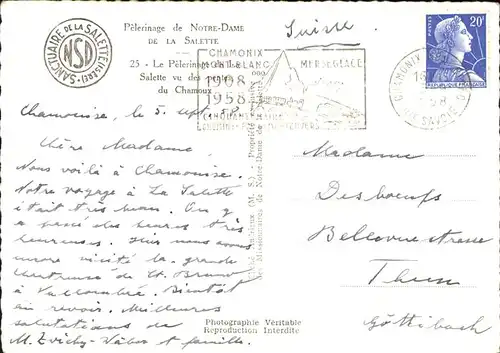 Pèlerinage de NOTRE-DAME
DE LA SALETTE
25 - Le Pèlerinage et les
Salette vu des
du Chamoux
SANCTUAIRE DE LA SALETTE (ISÈRE)
NSD
Suisse
CHAMONIX
MONT-BLANC MER DE GLACE
1908
1958
CINQUANTENAIRE
CHAMONIX
HTE SAVOIE
POSTES
20F
REPUBLIQUE FRANÇAISE
Chamonise, le 5. sept. 58
Chère Madame,
Nous voilà à Chamonise.
Notre voyage à La Salette
était très beau. On y
a passé des heures très
heureuses. Puis nous avons
encore visité la grande
Chartreuse de St. Bruno
à Vallombré. Bientôt
au revoir. Meilleures
salutations de
et famille.
Propriété
des Missionnaires de Notre-Dame de
Madame
Desboeufs
Bellevuestrasse
Thun
Göttibach
Photographie Véritable
Reproduction Interdite